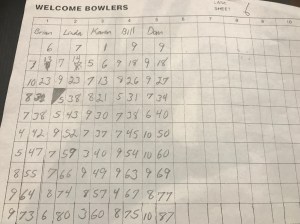 LANE
SHEET 6
WELCOME BOWLERS
1 2 3 4 5 6 7 8 9 10
Brian Linda Karen Bill Dan
6 7 1 9 9
7 5 6 9 18 9 18
10 23 9 23 7 13 8 26 9 27
8 5 38 8 21 5 31 7 34
7 38 5 43 9 30 7 38 6 40
4 42 9 52 7 37 7 45 10 50
5 47 7 59 3 40 9 54 10 60
8 55 7 66 9 49 9 63 9 69
9 64 8 74 8 57 4 67 8 77
9 73 6 80 3 60 8 75 10 87